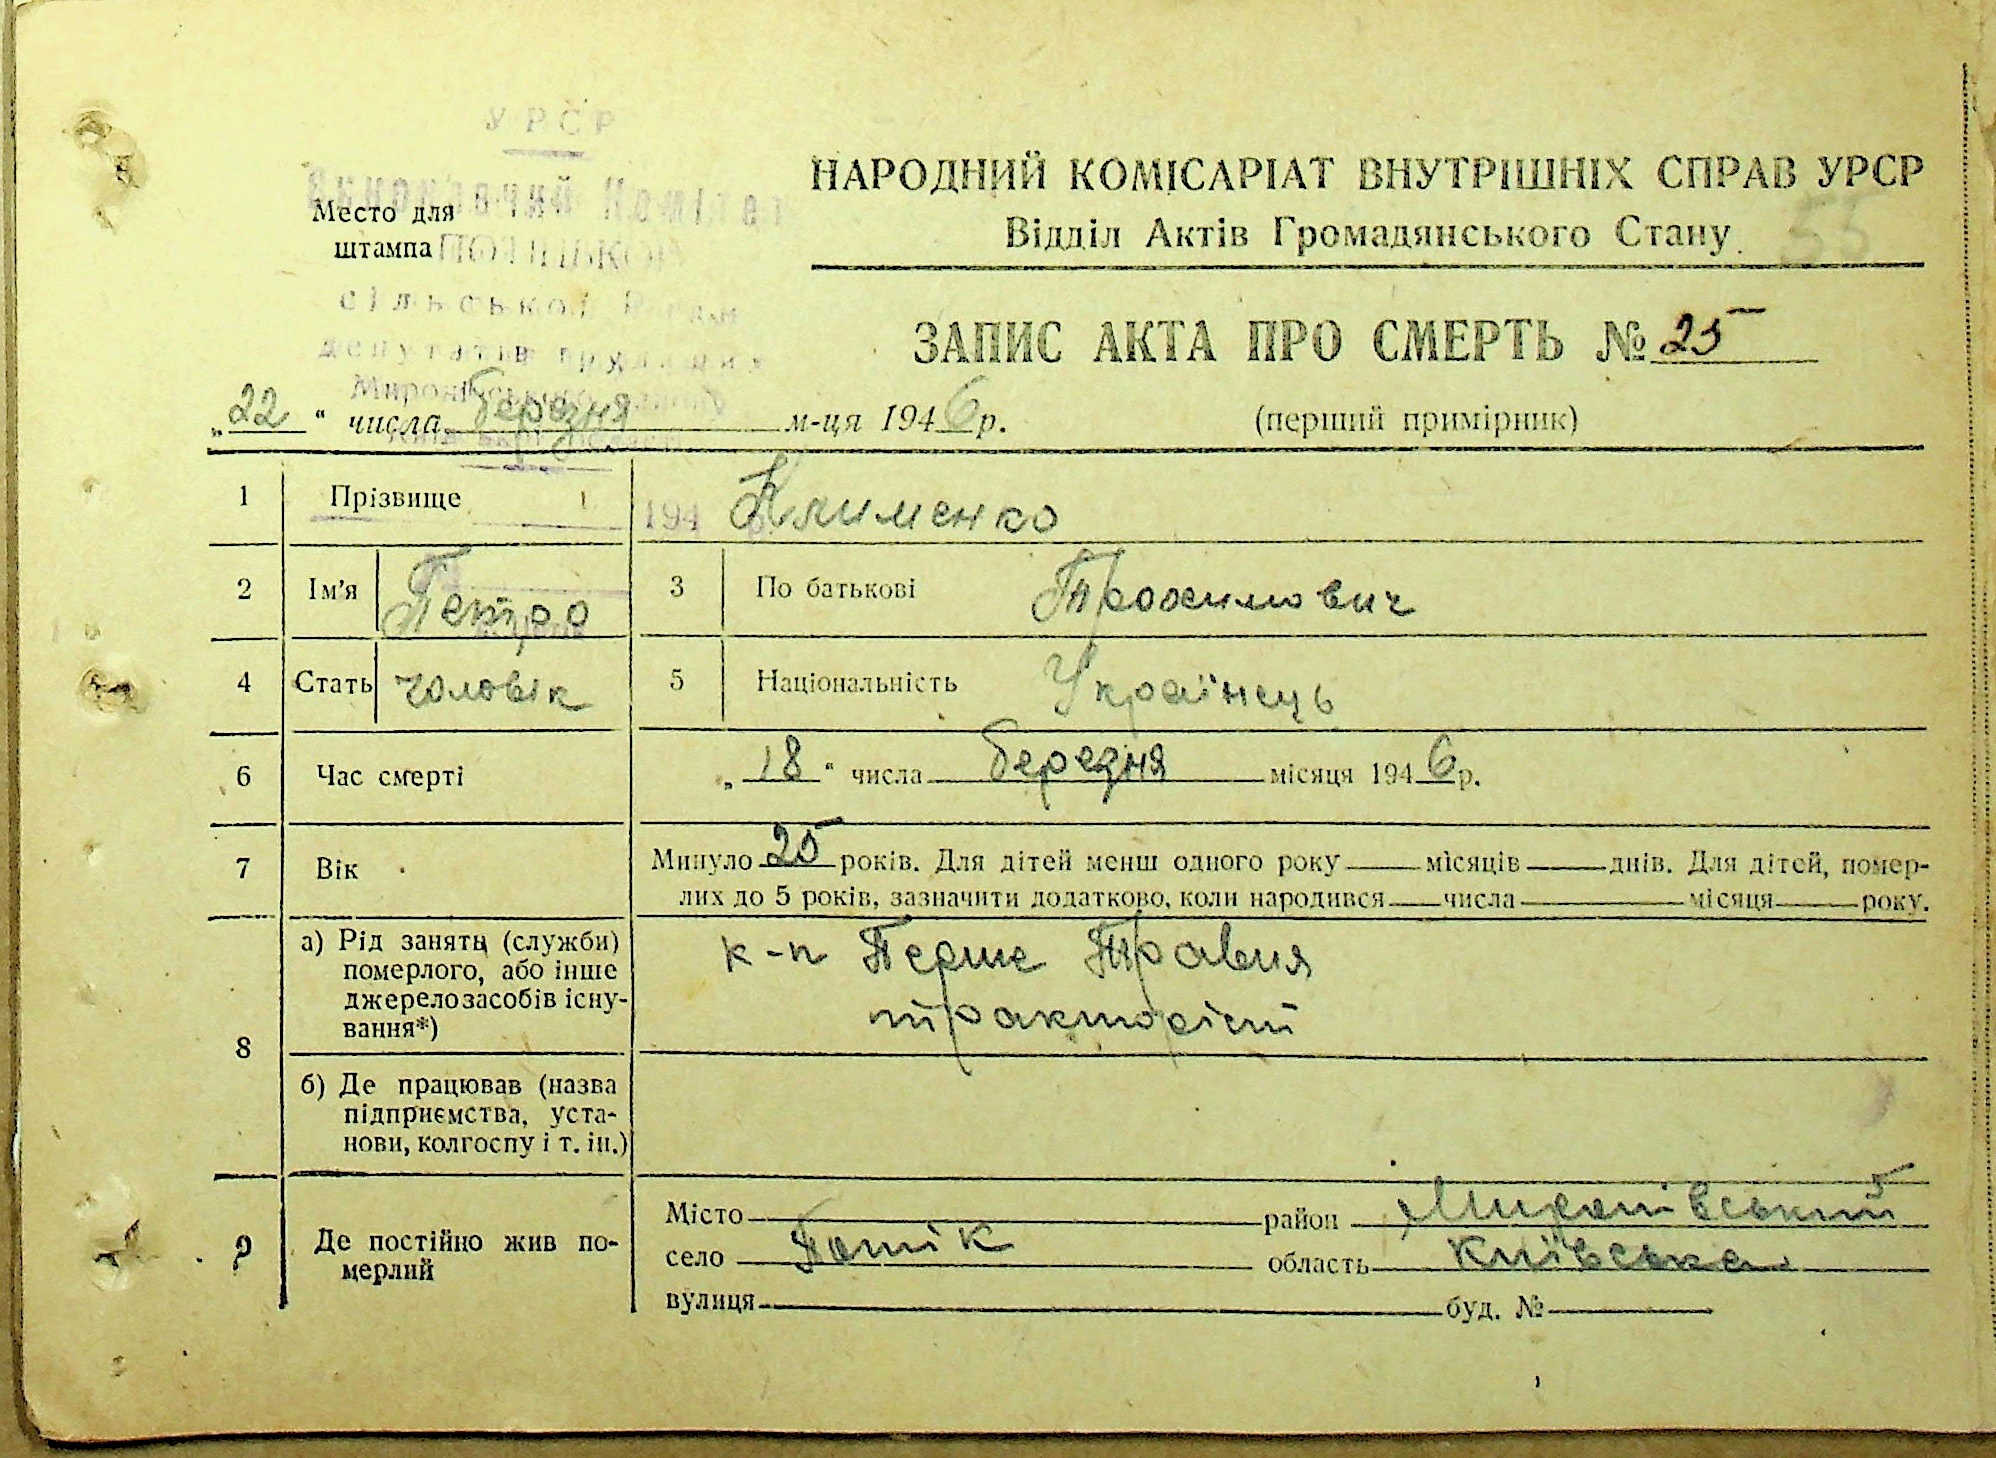 УРСР
Виконавчий Комітет
сільської Ради
депутатів трудящих
Место для
штампа
НАРОДНИЙ КОМІСАРІАТ ВНУТРІШНІХ СПРАВ УРСР
Відділ Актів Громадянського Стану
55
ЗАПИС АКТА ПРО СМЕРТЬ № 25
„22“ числа березня м-ця 1946 р.
(перший примірник)
1 Прізвище 194 Клименко
2 Ім'я Петро 3 По батькові Трохимович
4 Стать чоловік 5 Національність Українець
6 Час смерті „18“ числа березня місяця 1946 р.
7 Вік Минуло 25 років. Для дітей менш одного року місяців днів. Для дітей, помер-
лих до 5 років, зазначити додатково, коли народився числа місяця року.
8 а) Рід занять (служби)
померлого, або інше
джерело засобів існу-
вання*)
к-п Перше Травня
тракторіст
б) Де працював (назва
підприємства, уста-
нови, колгоспу і т. ін.)
9 Де постійно жив по-
мерлий
Місто район Миронівський
село Потік область Київська
вулиця буд. №